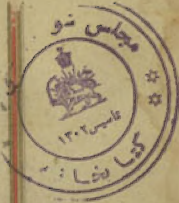 مجلس شو
تاسیس ۱۳۰۲
کتابخانه